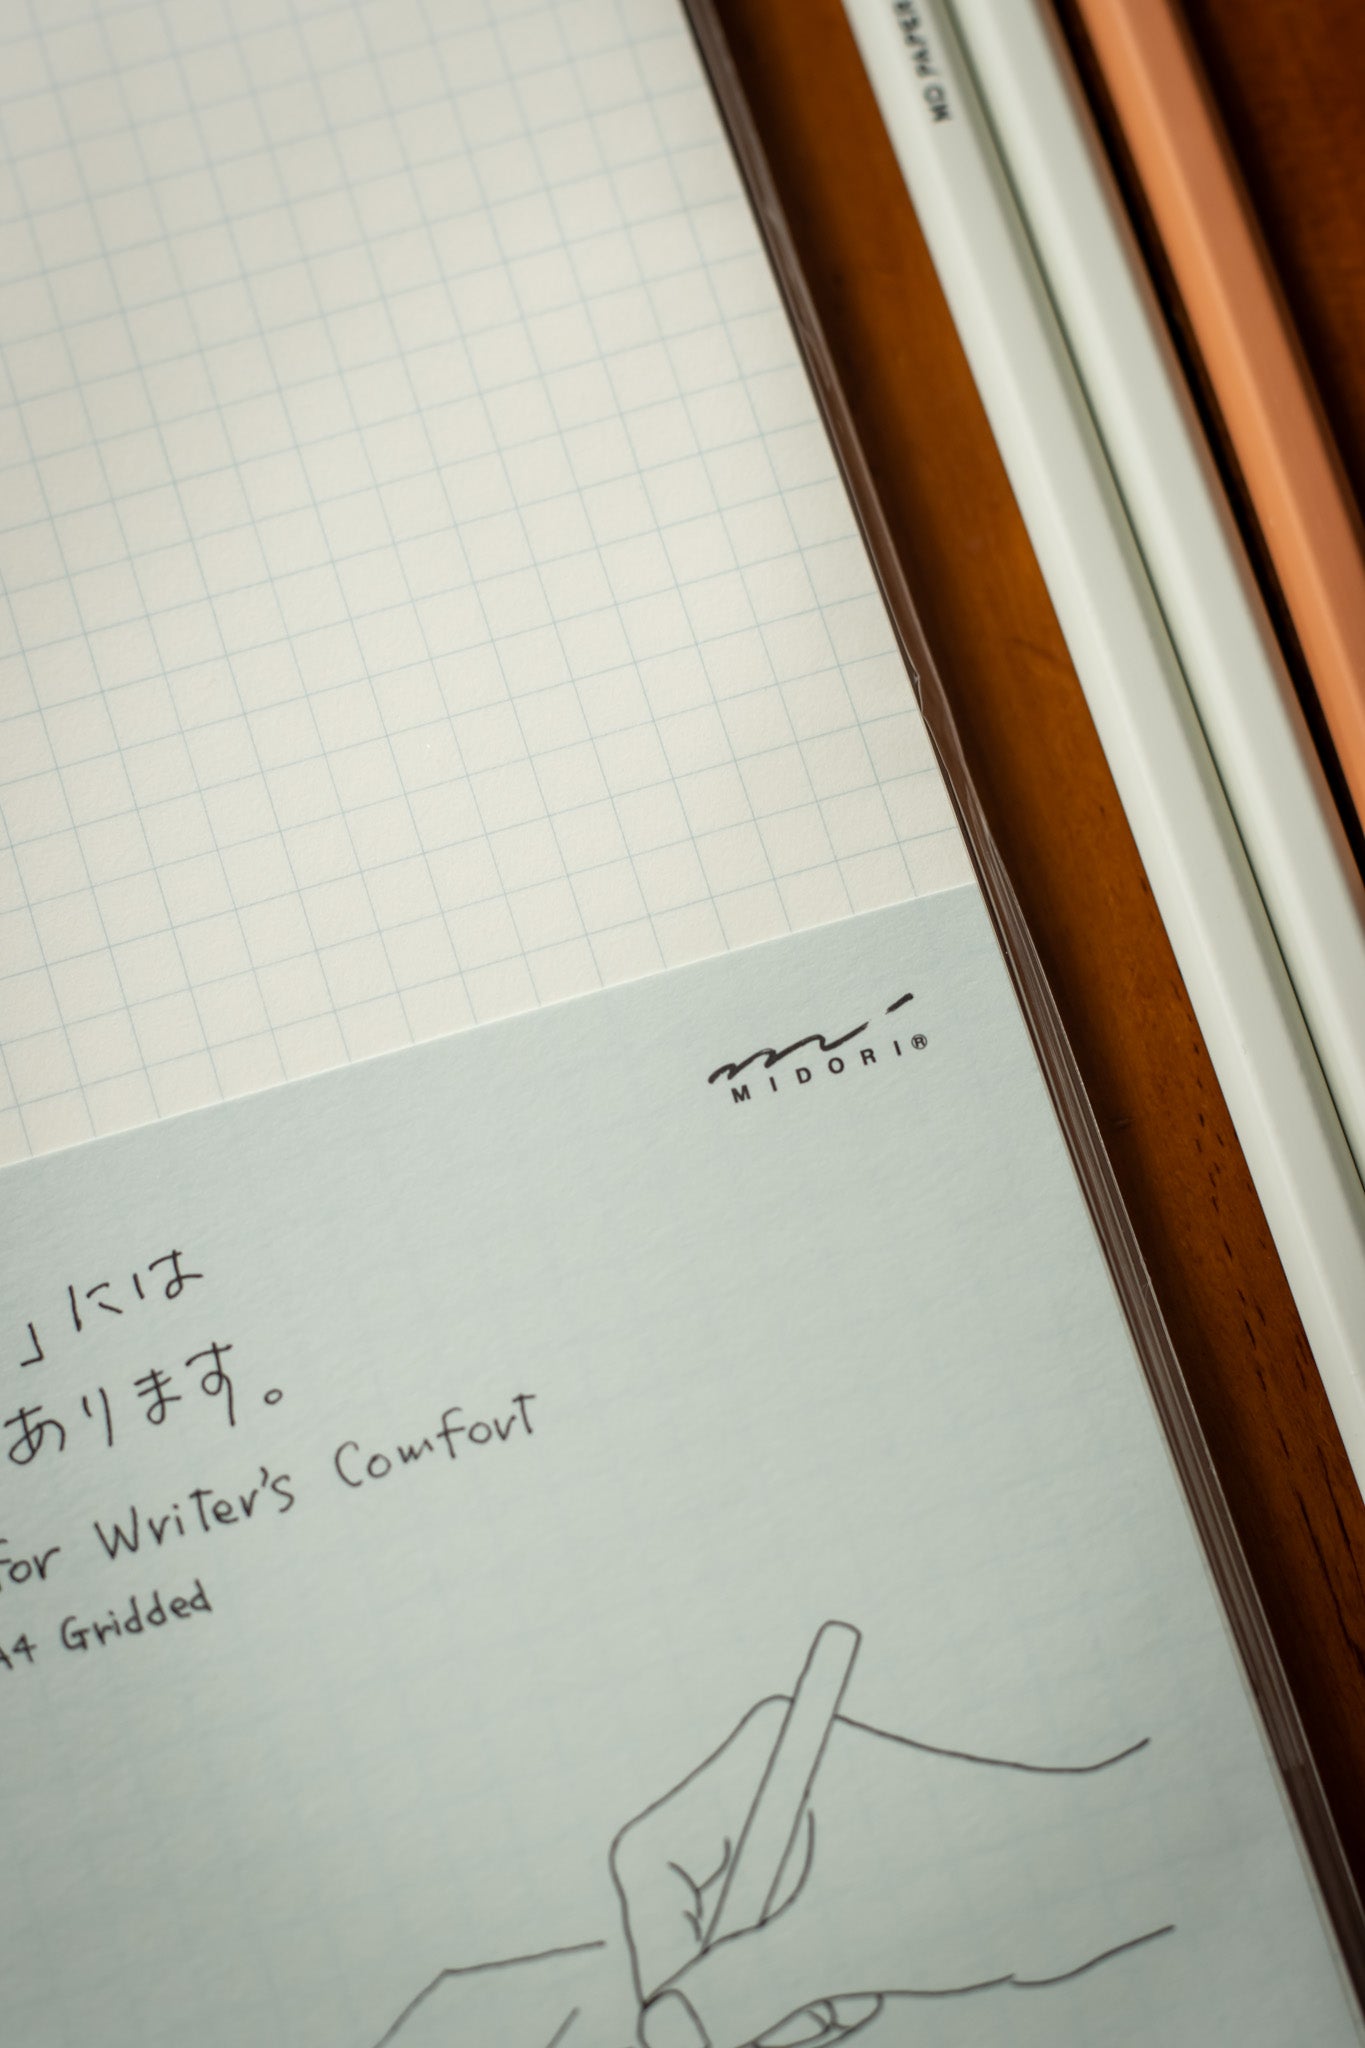 MD PAPER
MIDORI®
」には
あります。
for Writer's Comfort
A4 Gridded